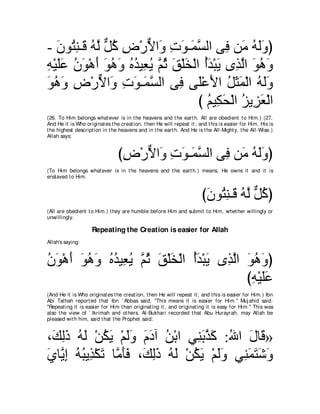 (وَلَهُ مَن فِى السَّمَـوَتِ وَالاٌّرْضِ كُلٌّ لَّهُ قَـنِتُونَ -
وَهُوَ الَّذِى يَبْدَأُ الْخَلْقَ ثُمَّ يُعِيدُهُ وَهُوَ أَهْوَنُ عَلَيْهِ
وَلَهُ الْمَثَلُ الاٌّعْلَى فِى السَّمَـوَتِ وَالاٌّرْضِ وَهُوَ
الْعَزِيزُ الْحَكِيمُ )
(26. To Him belongs whatever is in the heavens and the earth. All are obedient to Him.) (27. And He it is Who originates the creation, then He will repeat it; and this is easier for Him. His is the highest description in the heavens and in the earth. And He is the All-Mighty, the All-Wise.) Allah says:
(وَلَهُ مَن فِى السَّمَـوَتِ وَالاٌّرْضِ)
(To Him belongs whatever is in the heavens and the earth.) means, He owns it and it is enslaved to Him.
(كُلٌّ لَّهُ قَـنِتُونَ)
(All are obedient to Him.) they are humble before Him and submit to Him, whether willingly or unwillingly.
Repeating the Creation is easier for Allah
Allah's saying:
(وَهُوَ الَّذِى يَبْدَأُ الْخَلْقَ ثُمَّ يُعِيدُهُ وَهُوَ أَهْوَنُ
عَلَيْهِ)
(And He it is Who originates the creation, then He will repeat it; and this is easier for Him.) Ibn Abi Talhah reported that Ibn `Abbas said, "This means it is easier for Him." Mujahid said: "Repeating it is easier for Him than originating it, and originating it is easy for Him." This was also the view of `Ikrimah and others. Al-Bukhari recorded that Abu Hurayrah, may Allah be pleased with him, said that the Prophet said:
«قَالَ اللهُ: كَذَّبَنِي ابْنُ آدَمَ وَلَمْ يَكُنْ لَهُ ذلِكَ،
وَشَتَمَنِي وَلَمْ يَكُنْ لَهُ ذلِكَ، فَأَمَّا تَكْذِيبُهُ إِيَّايَ